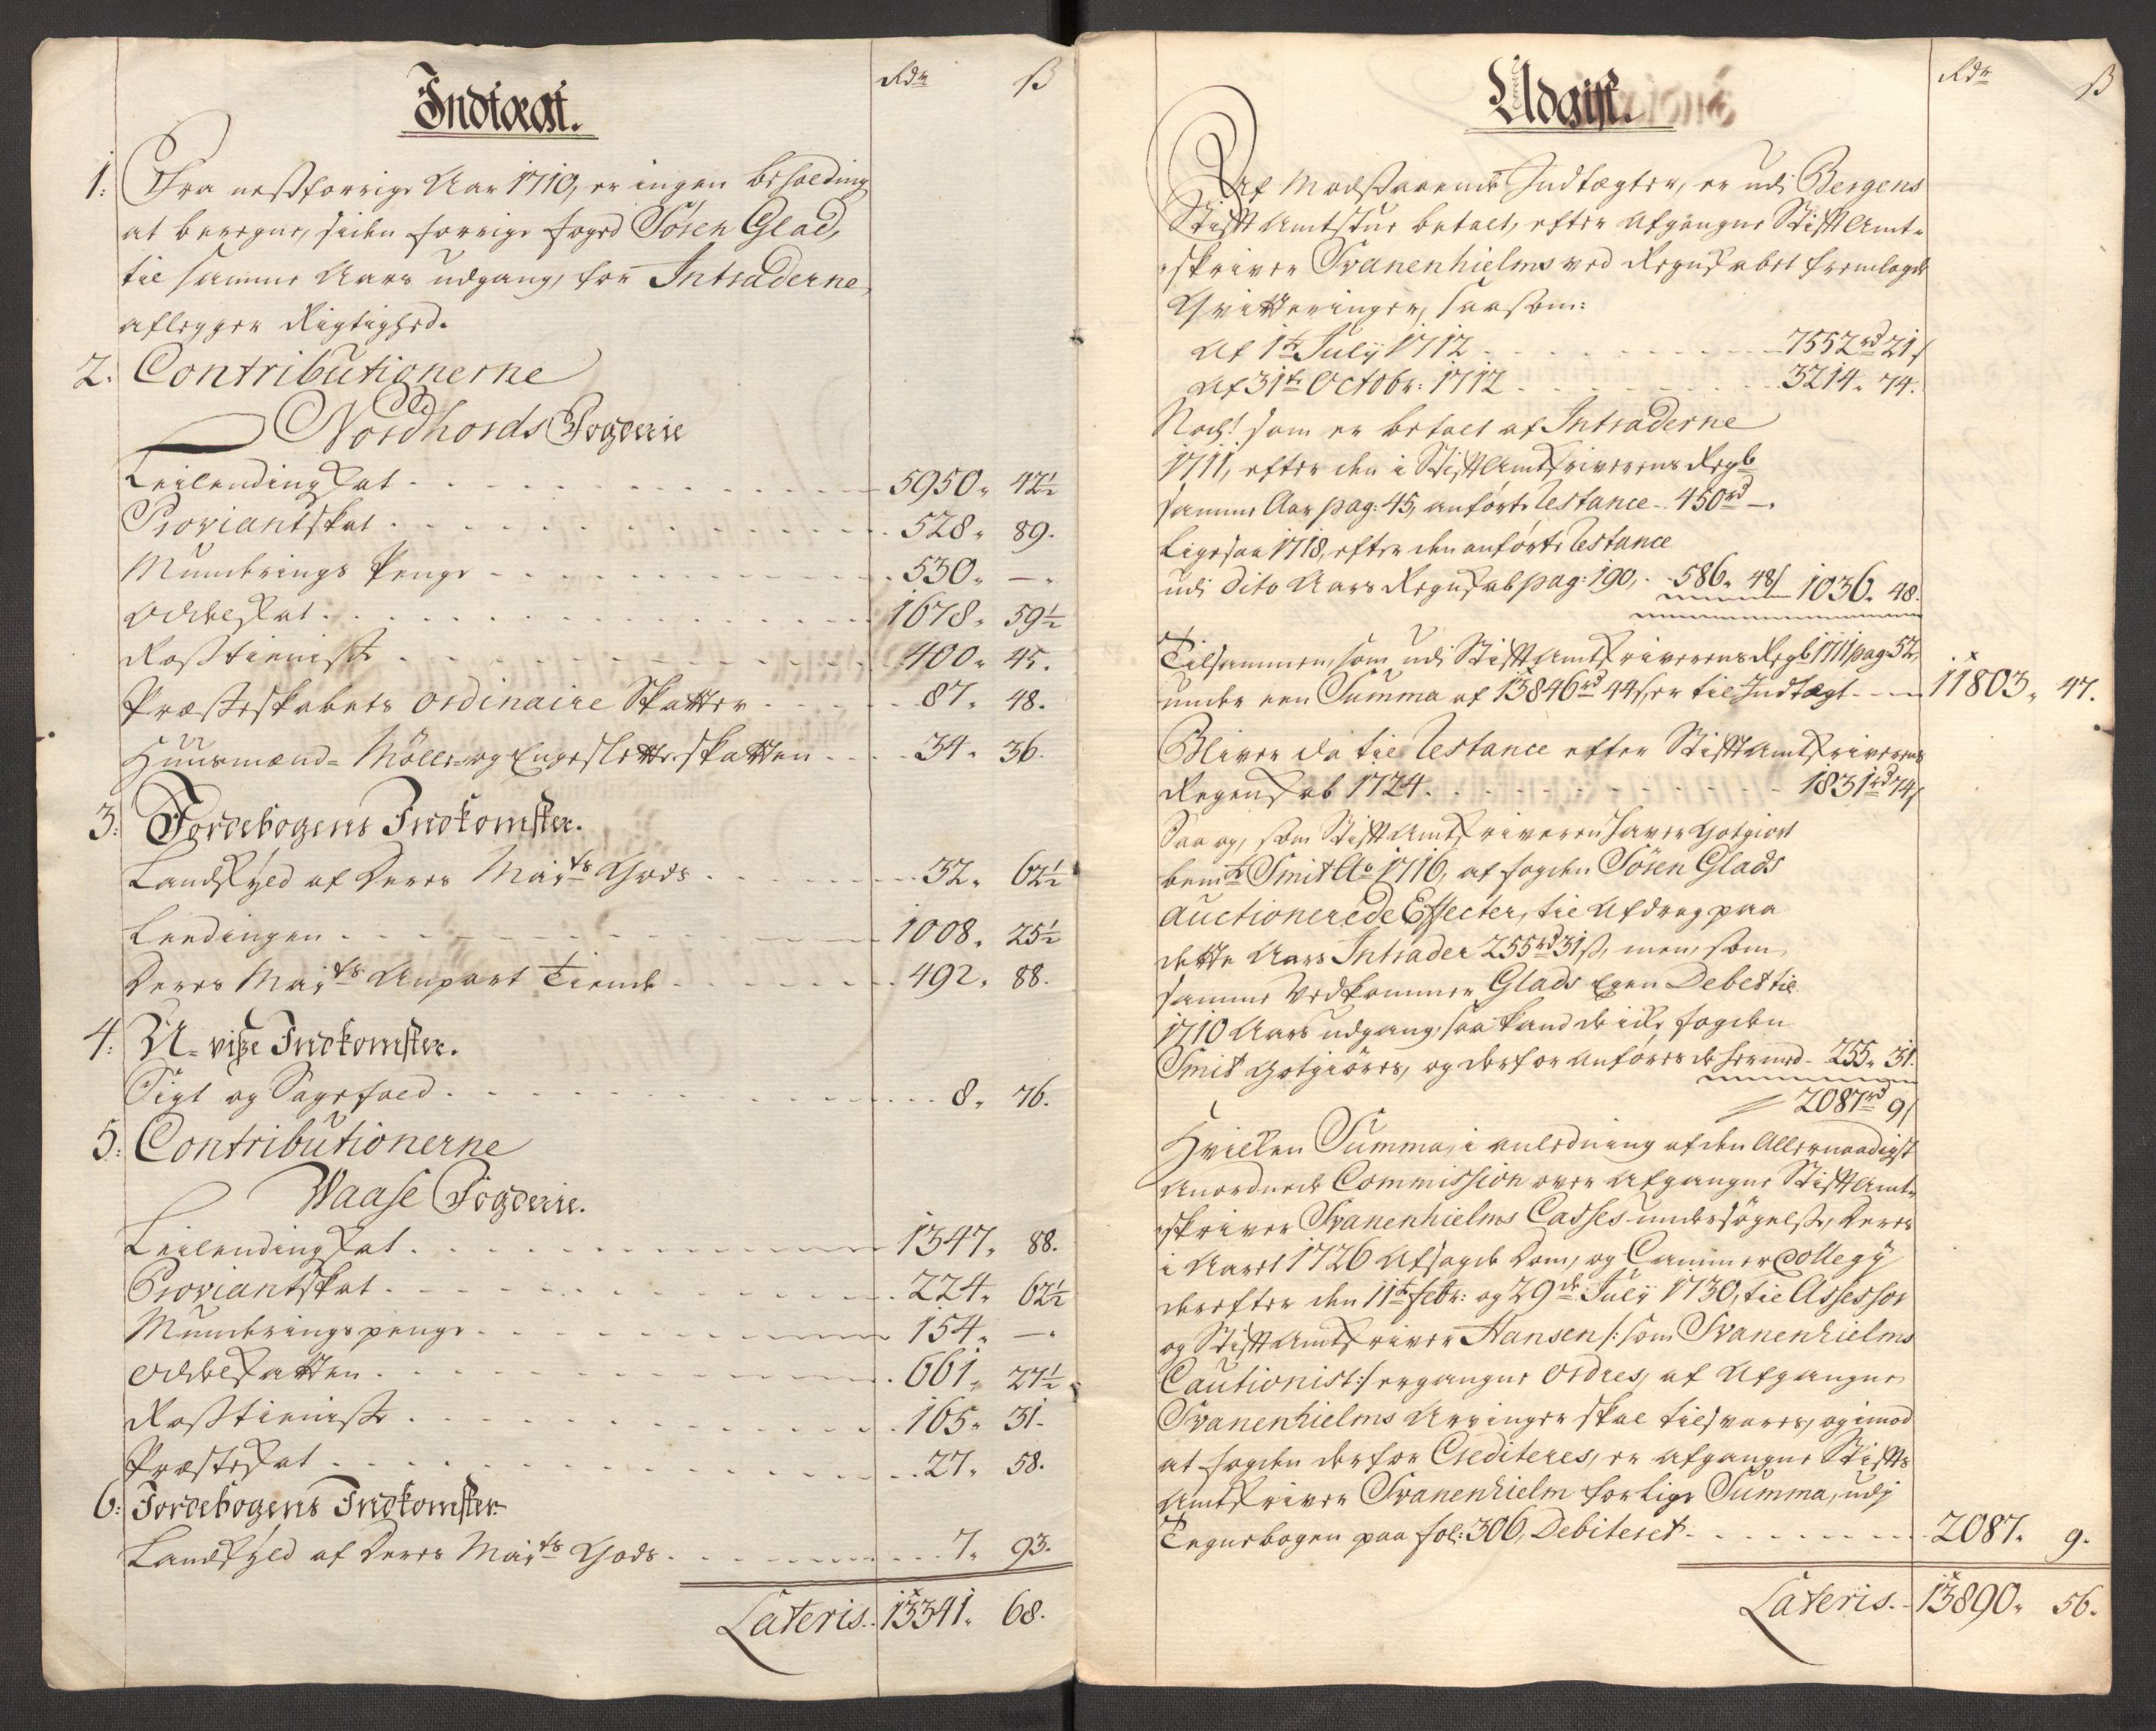 Indtægt.
Rdr ß
1. Fra nestforrige Aar 1710, er ingen beholding
at beregne, siden forrige foged Sören Glad,
til samme Aars udgang, for Intraderne
aflegger Rigtighed.
2. Contributionerne
Udi
Nordhords Fogderie
Leilendingskat 5950. 42½
Proviantskat 528. 89.
Munderings Penge 530. —.
Odelskat 1678. 59½
Rosstienist 400. 45.
Præsteskabets ordinaire Skatter 87. 48.
Huusmænd- Mölle- og Engeslette skatten 34. 36.
3. Jordebogens Indkomster.
Landskyld af Deres Mayts Gods 32. 62½
Leedingen 1008. 25½
Deres Mayts Anpart Tiende 492. 88.
4. U-visse Indkomster.
Sigt og Sagefald 8. 76.
5. Contributionerne
Waase Fogderie.
Leilendingskat 1347. 88.
Proviantskat 224. 62½
Munderingspenge 154. —.
Odelskatten 661. 27½
Rosstieniste 165. 31.
Præsteskat 27. 58.
6. Jordebogens Indkomster
Landskyld af Deres Mayts Gods 7. 93.
Lateris 13341. 68.
Udgift.
Rdr ß
Af Modstaaende Indtægter, er udi Bergens
Stift Amtstue betalt, efter Afgangne Stift Amt-
skriver Svanenhielms ved Regnskabet fremlagde
Qvitteringer, saasom:
Af 1te Julij 1712 7552rd 21s
Af 31te Octobr: 1712 3214. 74.
Noch! som er betalt af Intraderne
1711, efter den i Stift Amtskriverens Regb
samme Aar pag: 45, anförte Restance 450rd —.
Ligesaa 1718, efter den anförte Restance
udi dito Aars Regnskab pag: 190, 586. 48s 1036. 48.
Tilsammen, som udi Stift Amtskriverens Regb 1711 pag 52,
under een Summa af 13846rd 44s, er til Indtægt 11803. 47.
Bliver da til Restance efter Stift Amtskriverens
Regenskab 1724 1831rd 74s
Saa og, som Stift Amtskriveren haver Gotgiort
bemte Smit Ao 1716, af fogden Sören Glads
auctionerede Effecter, til Afdrag paa
dette Aars Intrader 255rd 31ß, men, som
samme Vedkommer Glads Egen Debet til
1710 Aars udgang, saa kand de icke fogden
Smit Gotgiöres, og derfor Anföres de hermed 255. 31.
2087rd 9s
Hvilken Summa, i anledning af den Allernaadigst
Anordnede Commission over Afgangne Stift Amt-
skriver Svanenhielms Casses undersögelse, Deres
i Aaret 1726 Afsagde Dom, og Cammer Collegij
derefter den 11te febr: og 29de Julij 1730, til Assessor
og Stift Amtskriver Hansen /: som Svanenhielms
Cautionist :/ ergangne Ordres, af Afgangne
Svanenhielms Arvinger skal tilsvares, og imod
at fogden derfor Crediteres, er afgangne Stifts
Amtskriver Svanenhielm for lige Summa, udj
Tegnebogen paa fol: 306, Debiteret 2087. 9.
Lateris 13890. 56.